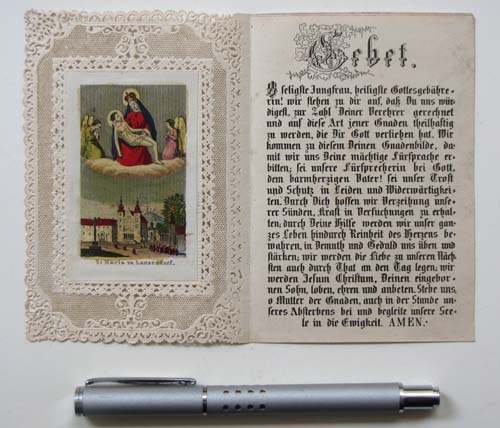 St Maria in Lanzendorf.
Gebet.
O seligste Jungfrau, heiligste Gottesgebähre-
rin! wir flehen zu dir auf, daß Du uns wür-
digest, zur Zahl Deiner Verehrer gerechnet
und auf diese Art jener Gnaden theilhaftig
zu werden, die Dir Gott verliehen hat. Wir
kommen zu diesem Deinen Gnadenbilde, da-
mit wir uns Deine mächtige Fürsprache er-
bitten; sei unsere Fürsprecherin bei Gott,
dem barmherzigen Vater! sei unser Trost
und Schutz in Leiden und Widerwärtigkei-
ten. Durch Dich hoffen wir Verzeihung unse-
rer Sünden, Kraft in Versuchungen zu erhal-
ten; durch Deine Hilfe werden wir unser gan-
zes Leben hindurch Reinheit des Herzens be-
wahren, in Demuth und Geduld uns üben und
stärken; wir werden die Liebe zu unseren Näch-
sten auch durch That an den Tag legen, wir
werden Jesum Christum, Deinen eingebor-
nen Sohn, loben, ehren und anbeten. Stehe uns,
o Mutter der Gnaden, auch in der Stunde un-
seres Absterbens bei und begleite unsere See-
le in die Ewigkeit. AMEN.